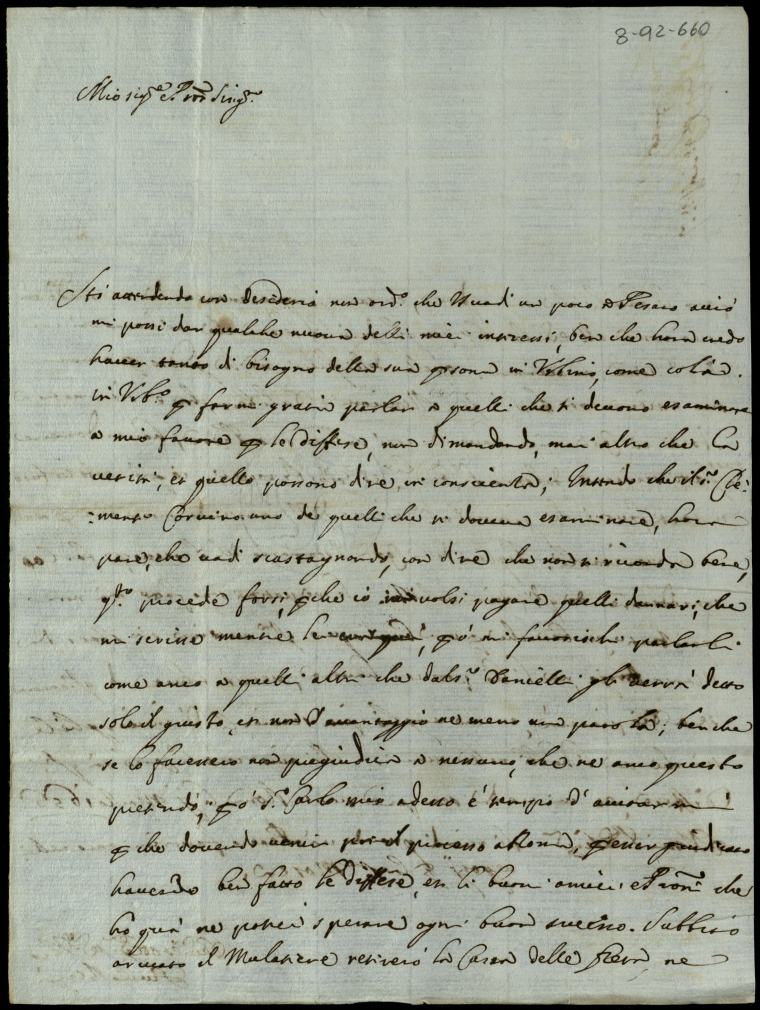 8-92-660
Mio sig.re e P.ron Sing.re
Stò attendendo con desiderio non ord.o che V uadi un poco à Pesaro acciò
mi possi dar qualche nuoua delli miei interessi, ben che hora credo
hauer tanto di bisogno della sua psona in Vrbino, come colà.
in Vrb.o p farmi gratia parlar à quelli che si deuono esaminare
a mio fauore p le diffese, non dimandando mai altro che la
verità, et quello possono dire in conscienza; Intendo che il s.r Cle:
:mente Coruino uno de quelli che si doueua esaminare, hora
pare, che uadi scastagnando, con dire che non si ricorda bene,
q.to procede forsi, pche io volsi pagare quelli dannari, che
mi scrisse mentre pò mi fauorischi parlarli
come anco a quelli altri che dal s.r Danielli gli verrà detto
solo il giusto, et non d'auantaggio ne meno una parola; ben che
se lo facessero non pregiudica a nessuno, che ne anco questo
pretendo, pò s.r Carlo mio adesso è tempo d'aiutarmi
p che douendo uenir poi il processo a Roma, p esser giudicato
hauendo ben fatto le diffese, et li buoni amici e P.roni che
hò quà ne potrei sperare ogni buon successo. Subbito
arriuato il Mulatiere retirerò la Cassa delle ne